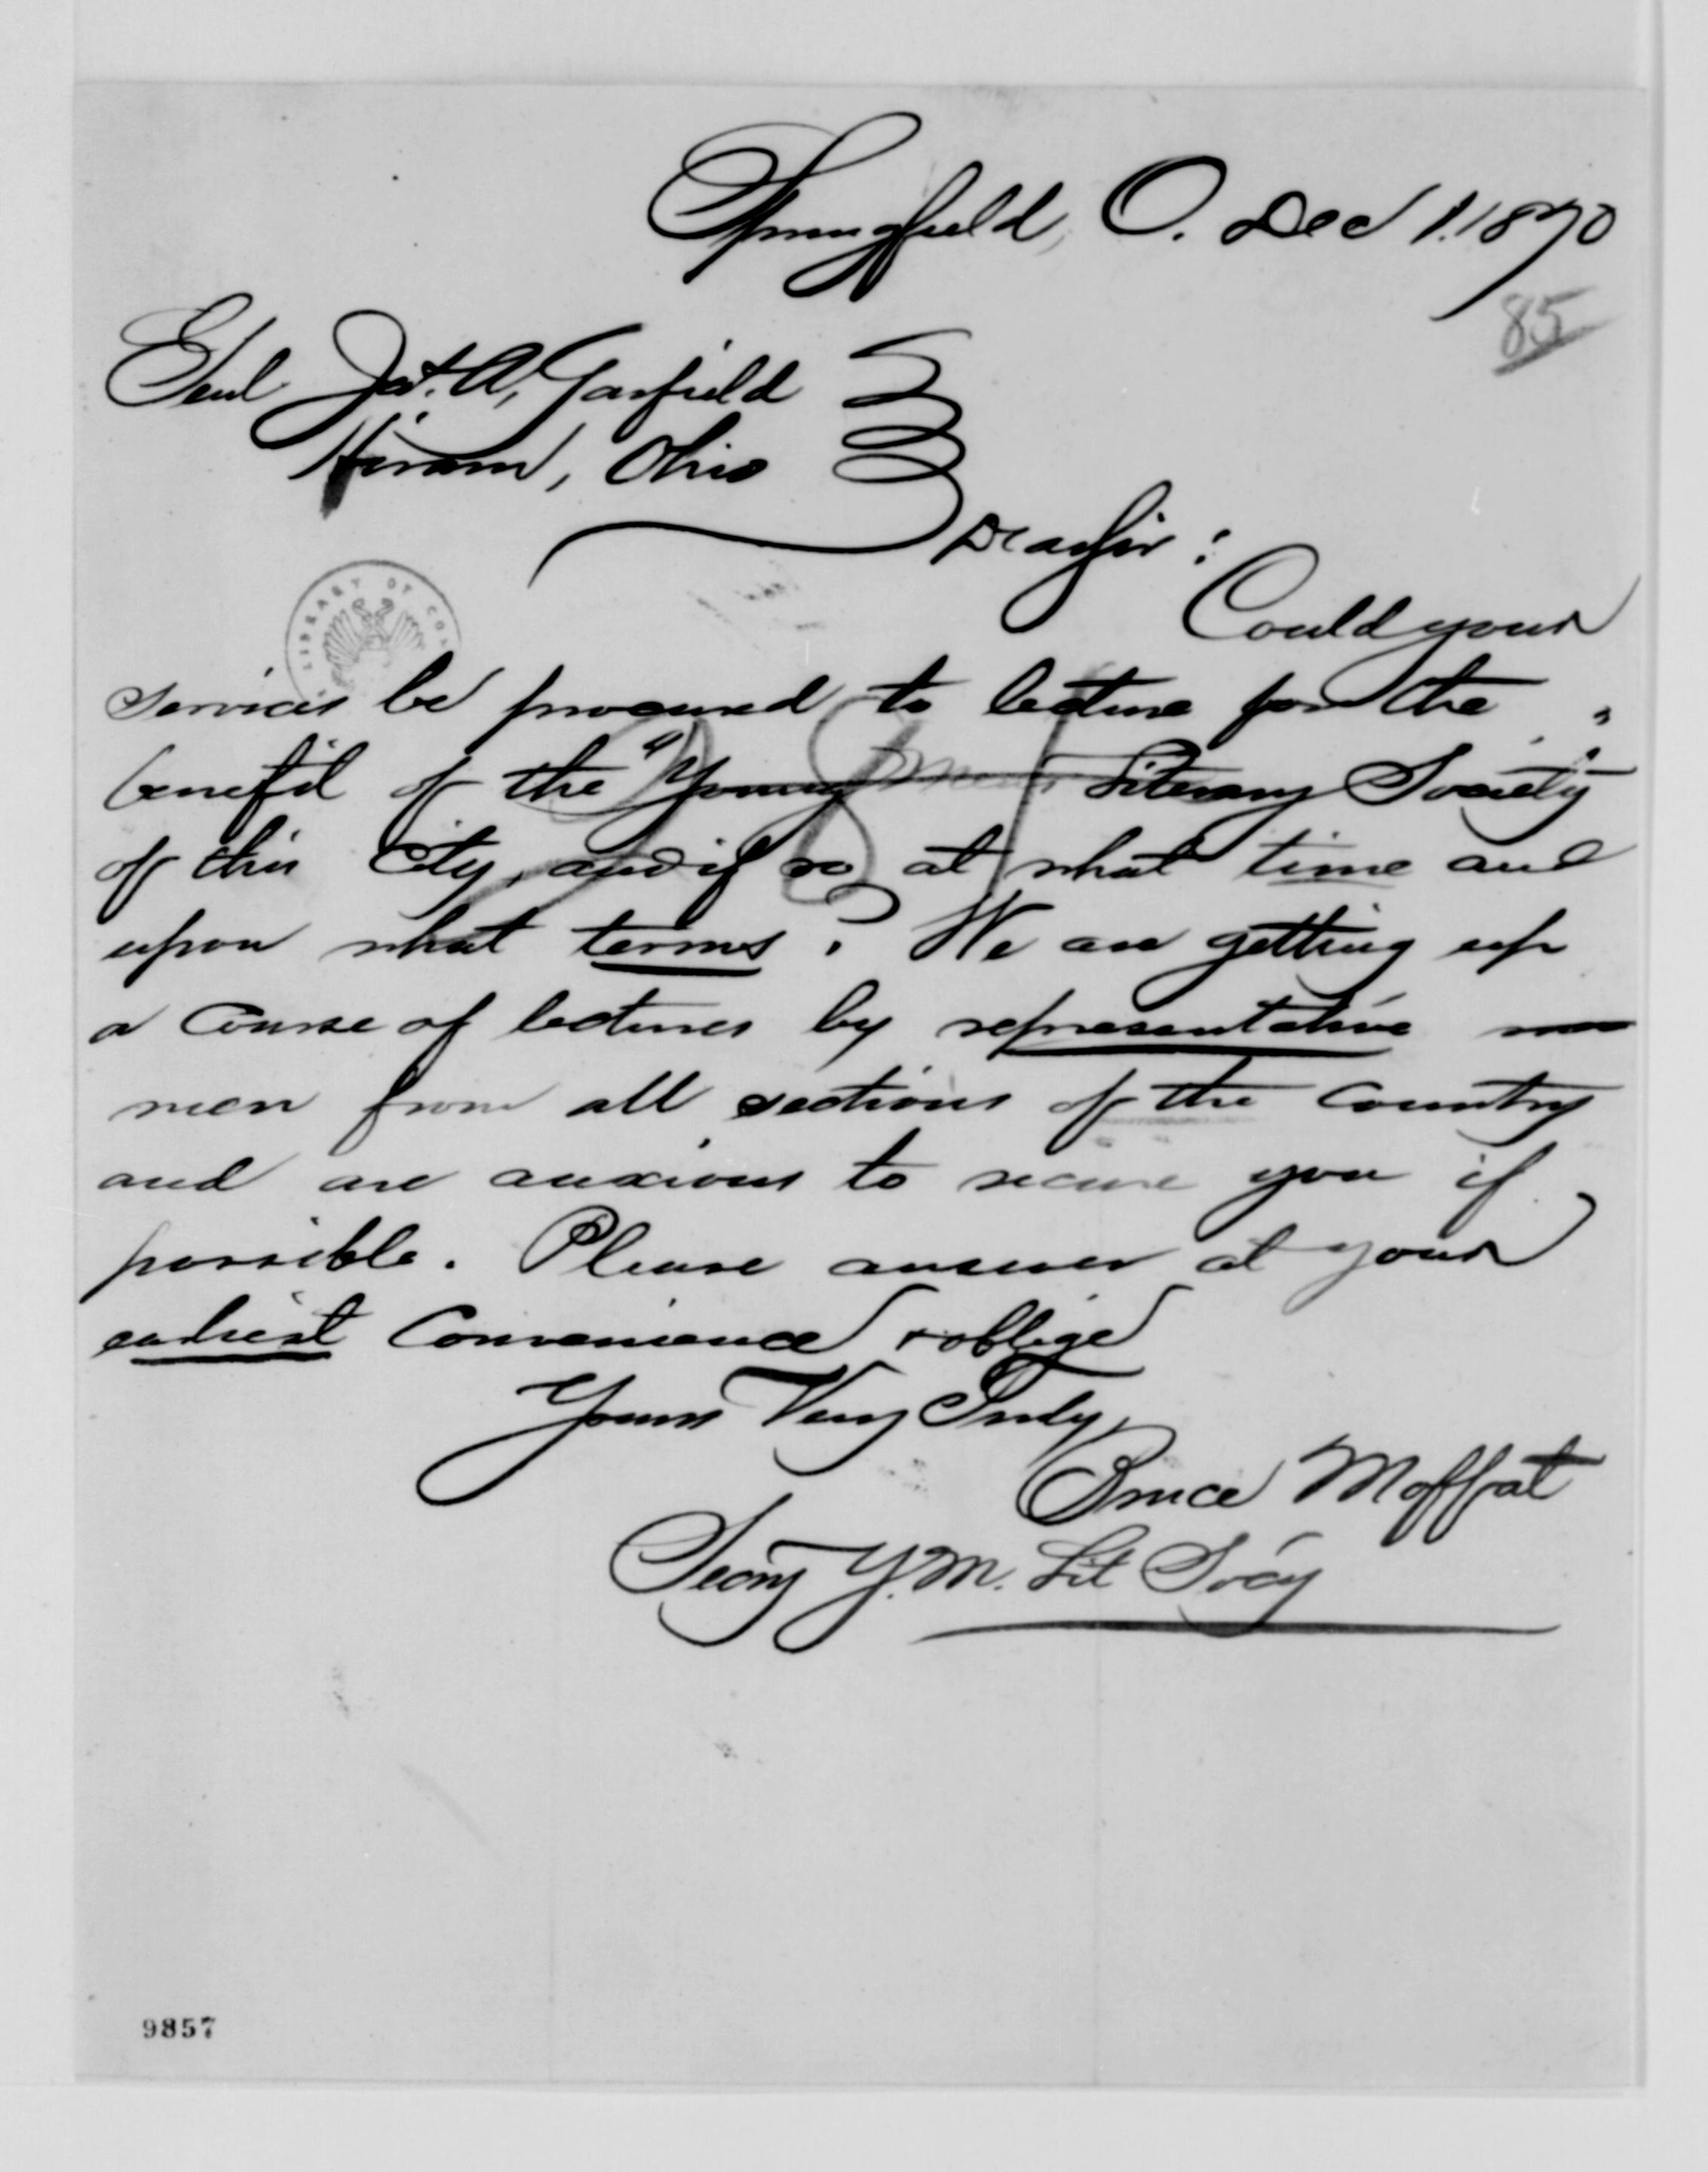 Springfield, O. Dec 1. 1870
85
Genl Jas. A. Garfield
Hiram, Ohio
Dear Sir:
Could your
services be procured to lecture for the
benefit of the "Young Men's Literary Society"
of this City, and if so at what time and
upon what terms? We are getting up
a Course of lectures by representative
men from all sections of the Country
and are anxious to secure you if
possible. Please answer at your
earliest Convenience & oblige
Yours Very Truly,
Bruce Moffat
Secry Y. M. Lit Socy
LIBRARY OF CON
9857